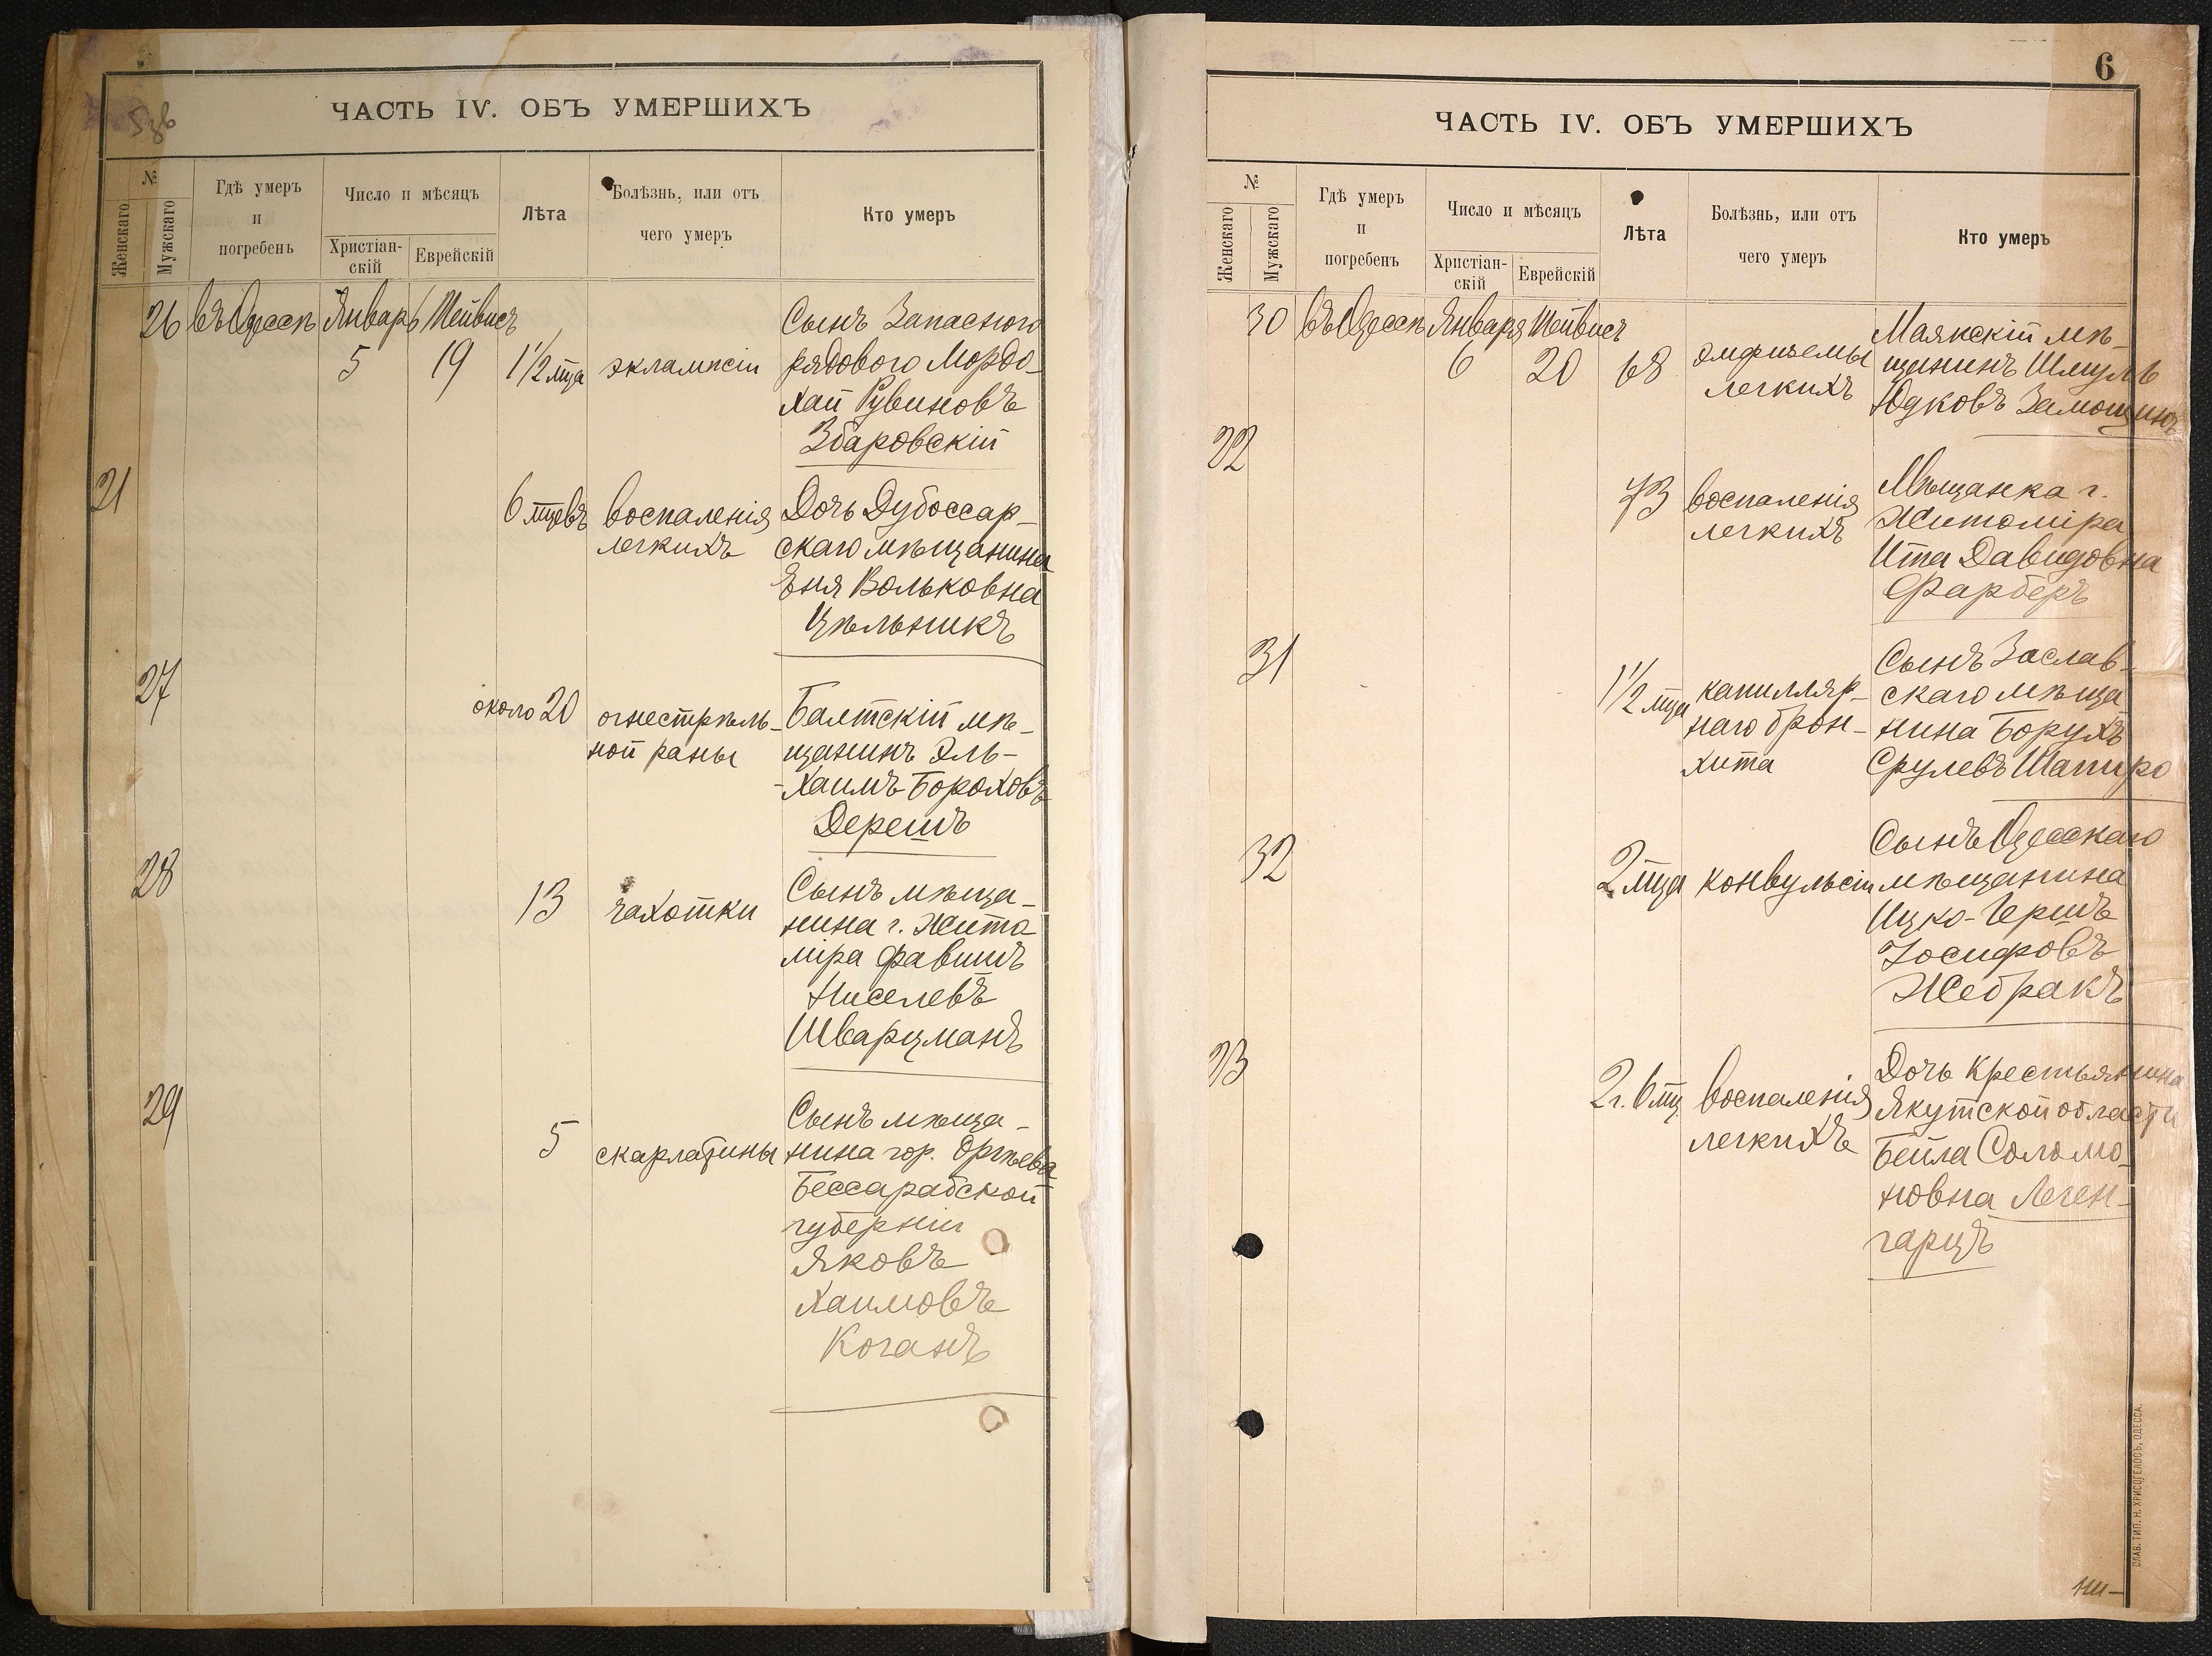 ЧАСТЬ IV. ОБЪ УМЕРШИХЪ
№
Женскаго
Мужскаго
Гдѣ умеръ
и
погребенъ
Число и мѣсяцъ
Христіан-
скій
Еврейскій
Лѣта
Болѣзнь, или отъ
чего умеръ
Кто умеръ
26 въ Одессѣ Январь Тейвисъ
5 19 1½ мца экламписіи
Сынъ Запаснаго
рядового Мордо-
хай Рувиновъ
Збаровскій
21
6 мцевъ воспаленія
легкихъ
Дочь Дубоссар-
скаго мѣщанина
Эня Вольковна
Цѣльникъ
27
около 20 огнестрѣль-
ной раны
Балтскій мѣ-
щанинъ Эль-
-Хаимъ Бороховъ
Дерешъ
28
13 чахотки
Сынъ мѣща-
нина г. Жито
міра Фавишъ
Киселевъ
Шварцманъ
29
5 скарлатины
Сынъ мѣща-
нина гор. Оргѣева
Бессарабской
губерніи
Яковъ
Хаимовъ
Коганъ
6
ЧАСТЬ IV. ОБЪ УМЕРШИХЪ
№
Женскаго
Мужскаго
Гдѣ умеръ
и
погребенъ
Число и мѣсяцъ
Христіан-
скій
Еврейскій
Лѣта
Болѣзнь, или отъ
чего умеръ
Кто умеръ
30 въ Одессѣ Января Тейвисъ
6 20 68 эмфиземы
легкихъ
Маякскій мѣ-
щанинъ Шмуль
Юдковъ Замощинъ
22
73 воспаленія
легкихъ
Мѣщанка г.
Житоміра
Ита Давидовна
Фарберъ
31
1½ мца капилляр-
наго брон-
хита
Сынъ Заслав-
скаго мѣща
нина Борухъ
Срулевъ Шапиро
32
2 мца конвульсіи
Сынъ Одесскаго
мѣщанина
Ицко-Гершъ
Іосифовъ
Жебракъ
23
2 г. 6 мц. воспаленія
легкихъ
Дочь Крестьянина
Якутской области
Бейла Соломо-
новна Леген-
гарцъ
СЛАВ. ТИП. Н. ХРИСОГЕЛОСЪ, ОДЕССА.